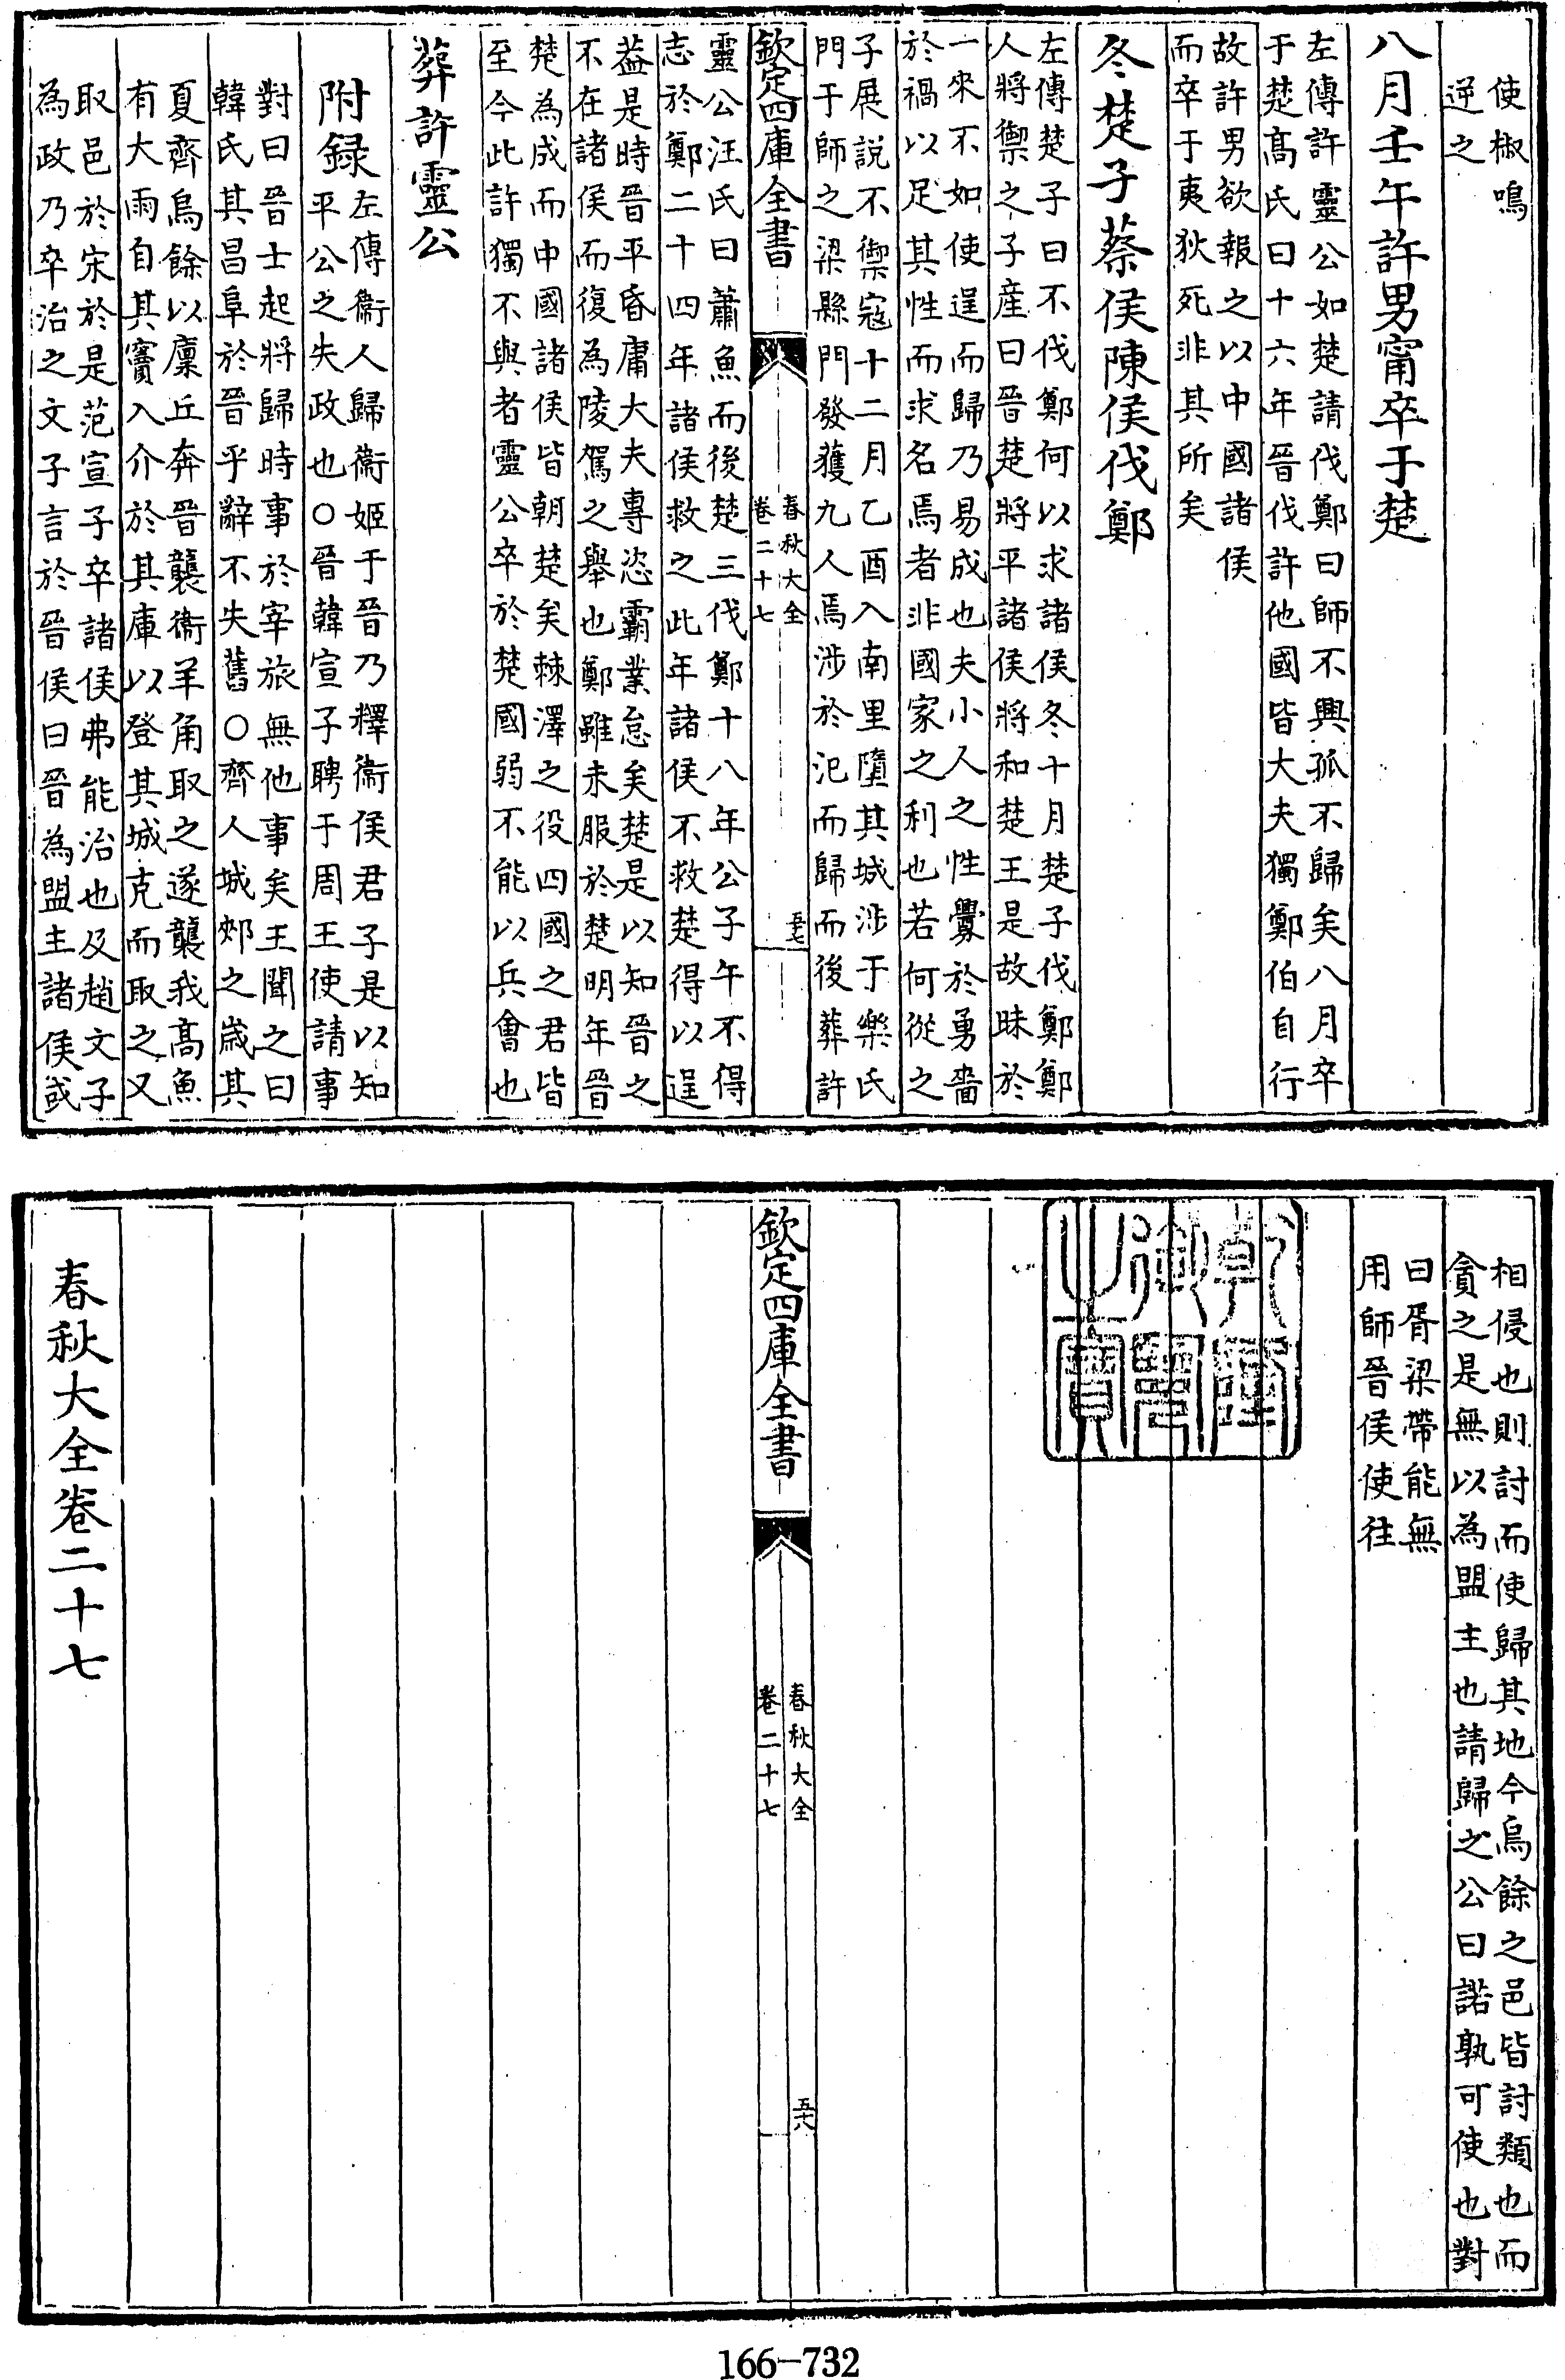 使椒鳴
逆之
八月壬午許男甯卒于楚
左傳許靈公如楚請伐鄭曰師不興孤不歸矣八月卒
于楚髙氏曰十六年晉伐許他國皆大夫獨鄭伯自行
故許男欲報之以中國諸侯
而卒于夷狄死非其所矣
冬楚子蔡侯陳侯伐鄭
左傳楚子曰不伐鄭何以求諸侯冬十月楚子伐鄭鄭
人將禦之子産曰晉楚將平諸侯將和楚王是故昧於
一來不如使逞而歸乃易成也夫小人之性釁於勇嗇
於禍以足其性而求名焉者非國家之利也若何從之
子展説不禦寇十二月乙酉入南里墮其城涉于樂氏
門于師之梁縣門發獲九人焉涉於氾而歸而後葬許
欽定四庫全書
春秋大全
卷二十七
五十七
靈公汪氏曰蕭魚而後楚三伐鄭十八年公子午不得
志於鄭二十四年諸侯救之此年諸侯不救楚得以逞
葢是時晉平昏庸大夫專恣霸業怠矣楚是以知晉之
不在諸侯而復為陵駕之舉也鄭雖未服於楚明年晉
楚為成而中國諸侯皆朝楚矣棘澤之役四國之君皆
至今此許獨不與者靈公卒於楚國弱不能以兵會也
葬許靈公
附録左傳衞人歸衞姬于晉乃釋衞侯君子是以知
平公之失政也○晉韓宣子聘于周王使請事
對曰晉士起將歸時事於宰旅無他事矣王聞之曰
韓氏其昌阜於晉乎辭不失舊○齊人城郟之歳其
夏齊烏餘以廩丘奔晉襲衞羊角取之遂襲我髙魚
有大雨自其竇入介於其庫以登其城克而取之又
取邑於宋於是范宣子卒諸侯弗能治也及趙文子
為政乃卒治之文子言於晉侯曰晉為盟主諸侯或
相侵也則討而使歸其地今烏餘之邑皆討類也而
貪之是無以為盟主也請歸之公曰諾孰可使也對
曰胥梁帶能無
用師晉侯使往
乾隆御覽之寶
欽定四庫全書
春秋大全
卷二十七
五十八
春秋大全卷二十七
166-732